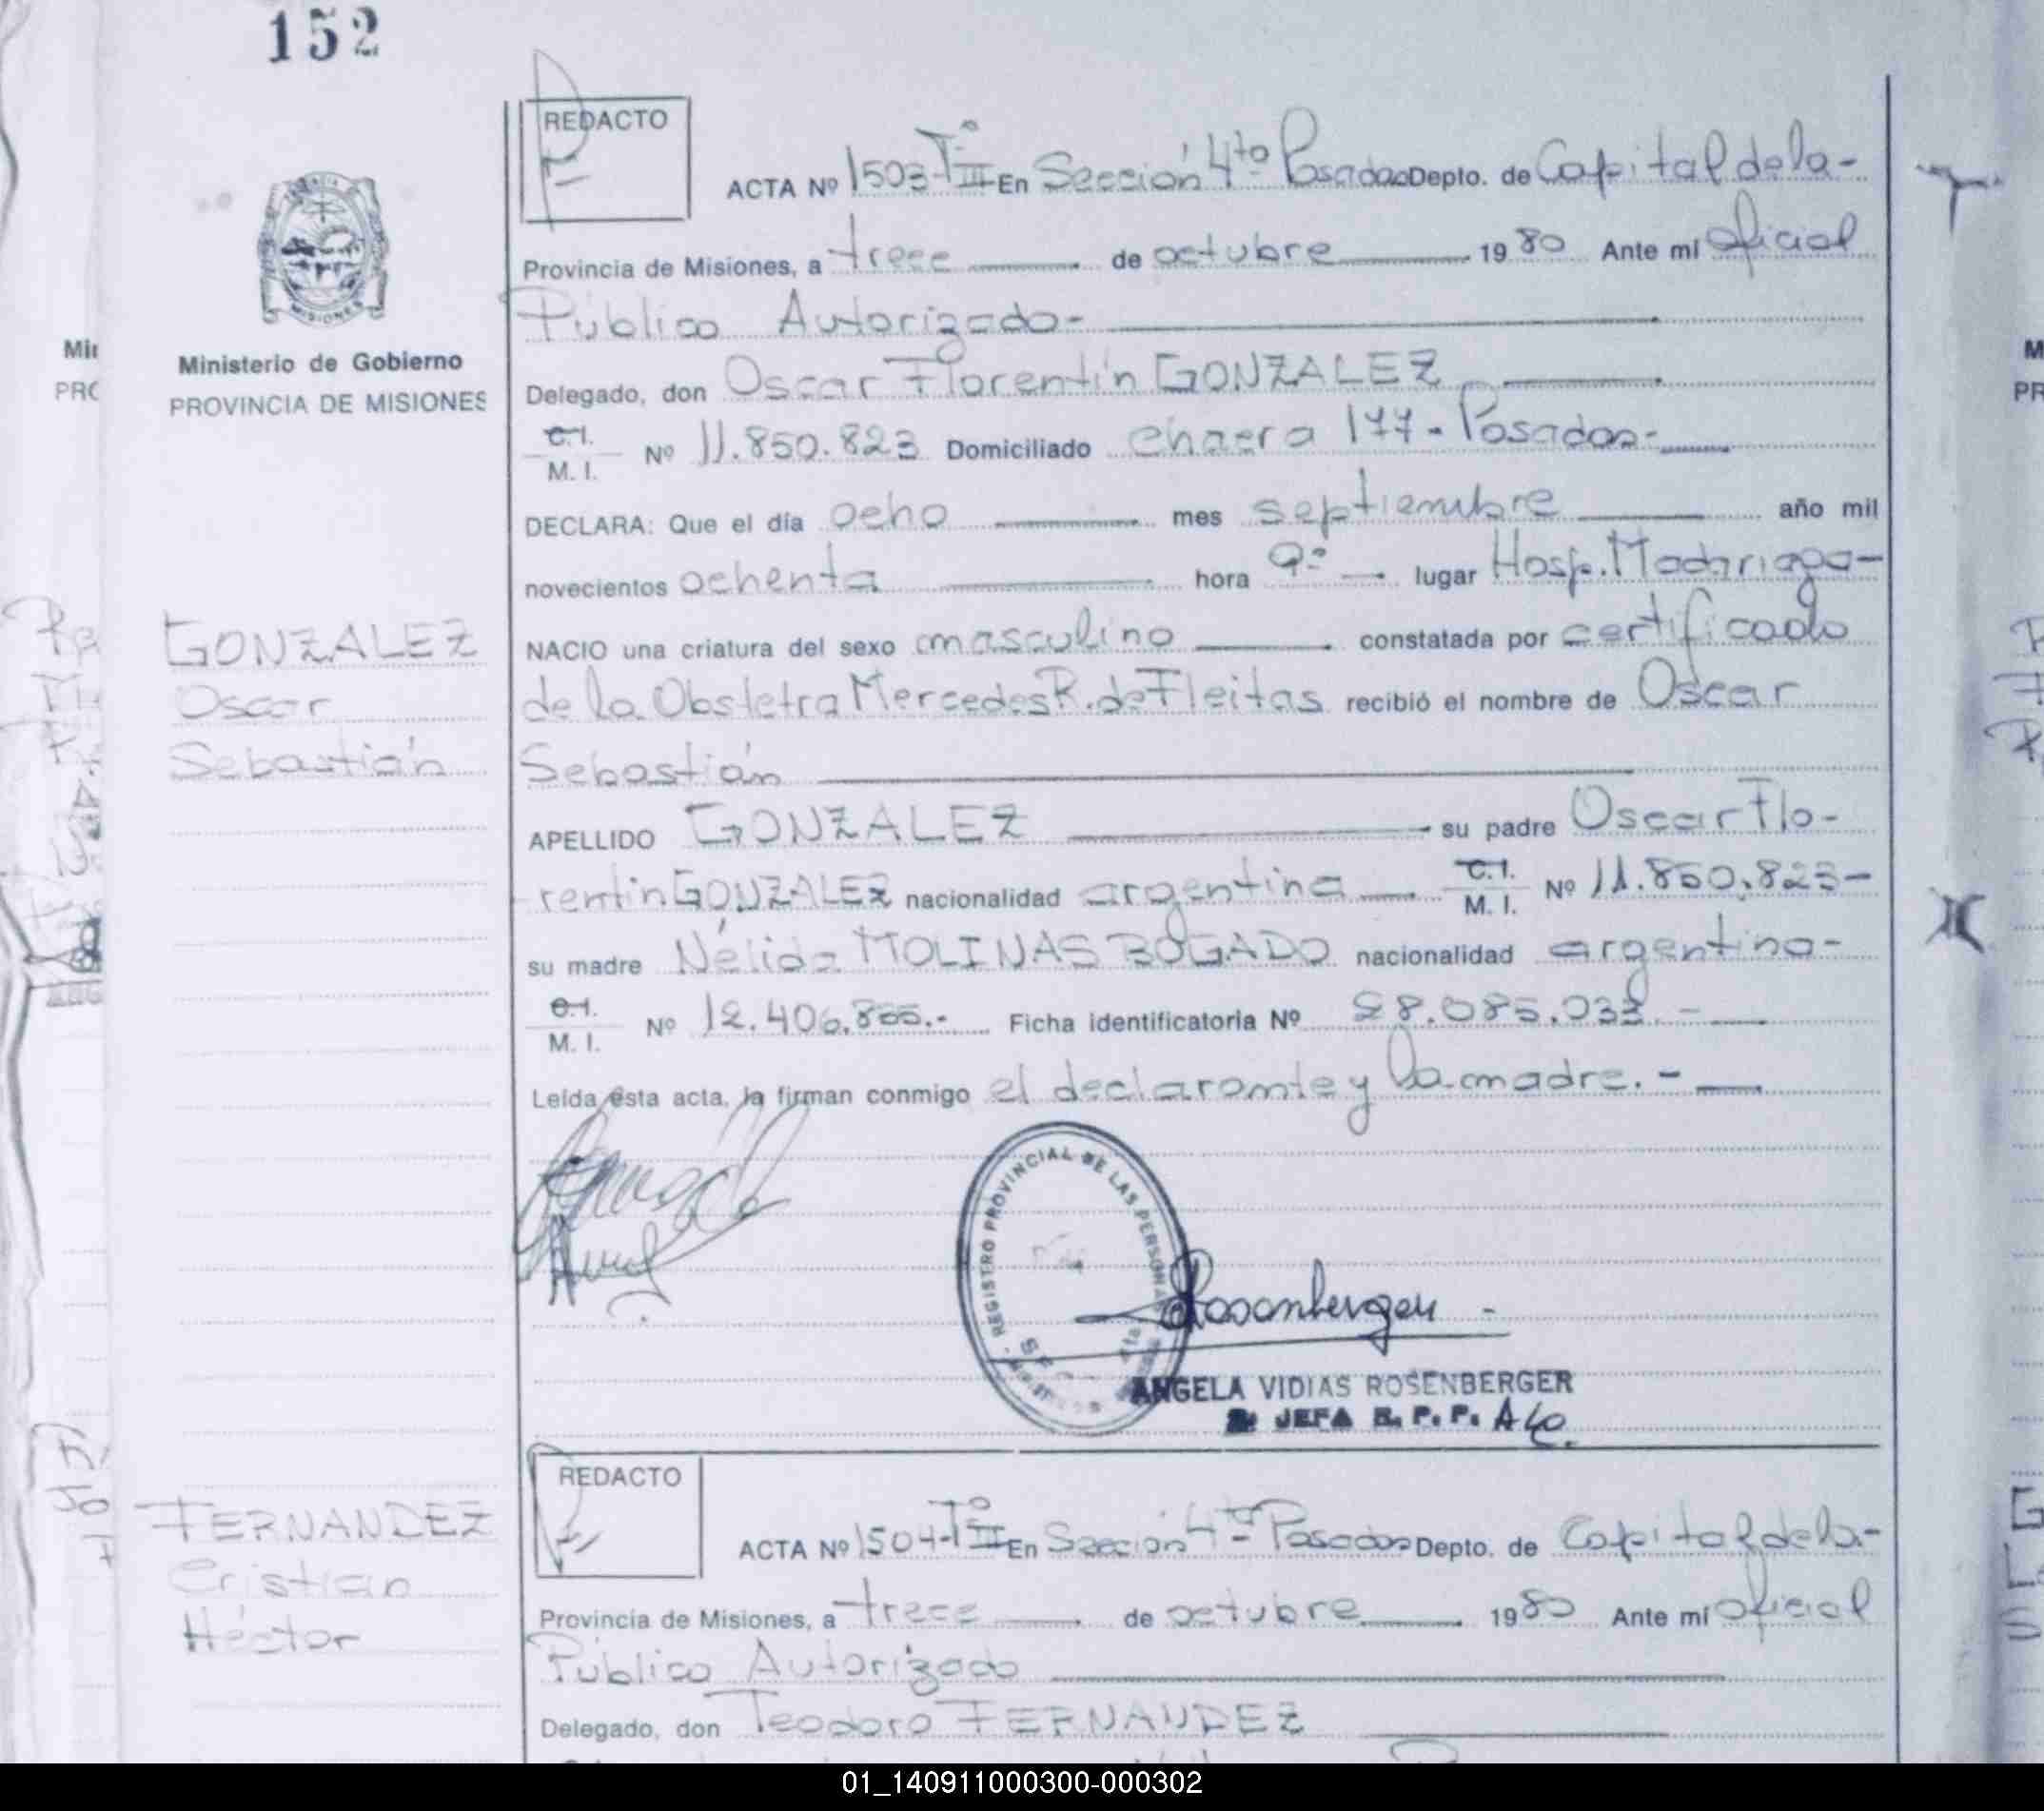 152
REDACTO
ACTA Nº 1503-Tº III En Sección 4ta Posadas Depto. de Capital de la-
Provincia de Misiones, a trece de octubre 1980 Ante mi Oficial
Público Autorizado-
Delegado, don Oscar Florentín GONZALEZ
C.I.
M. I. Nº 11.850.823 Domiciliado chacra 177-Posadas-
DECLARA: Que el día ocho mes septiembre año mil
novecientos ochenta hora 9º lugar Hosp. Madariaga-
NACIO una criatura del sexo masculino constatada por certificado
de la Obstetra Mercedes R. de Fleitas recibió el nombre de Oscar
Sebastián
APELLIDO GONZALEZ su padre Oscar Flo-
rentín GONZALEZ nacionalidad argentina C.I. M. I. Nº 11.850.823-
su madre Nélida MOLINAS BOGADO nacionalidad argentina-
C.I.
M. I. Nº 12.406.855.- Ficha identificatoria Nº 28.085.033.-
Leída ésta acta, la firman conmigo el declarante y la madre.-
MISIONES
Ministerio de Gobierno
PROVINCIA DE MISIONES
GONZALEZ
Oscar
Sebastián
REGISTRO PROVINCIAL DE LAS PERSONAS
Rosenberger
ANGELA VIDIAS ROSENBERGER
JEFA R. P. P.
REDACTO
ACTA Nº 1504-Tº III En Sección 4ta Posadas Depto. de Capital de la-
Provincia de Misiones, a trece de octubre 1980 Ante mi Oficial
Público Autorizado
Delegado, don Teodoro FERNANDEZ
FERNANDEZ
Cristian
Héctor
01_140911000300-000302